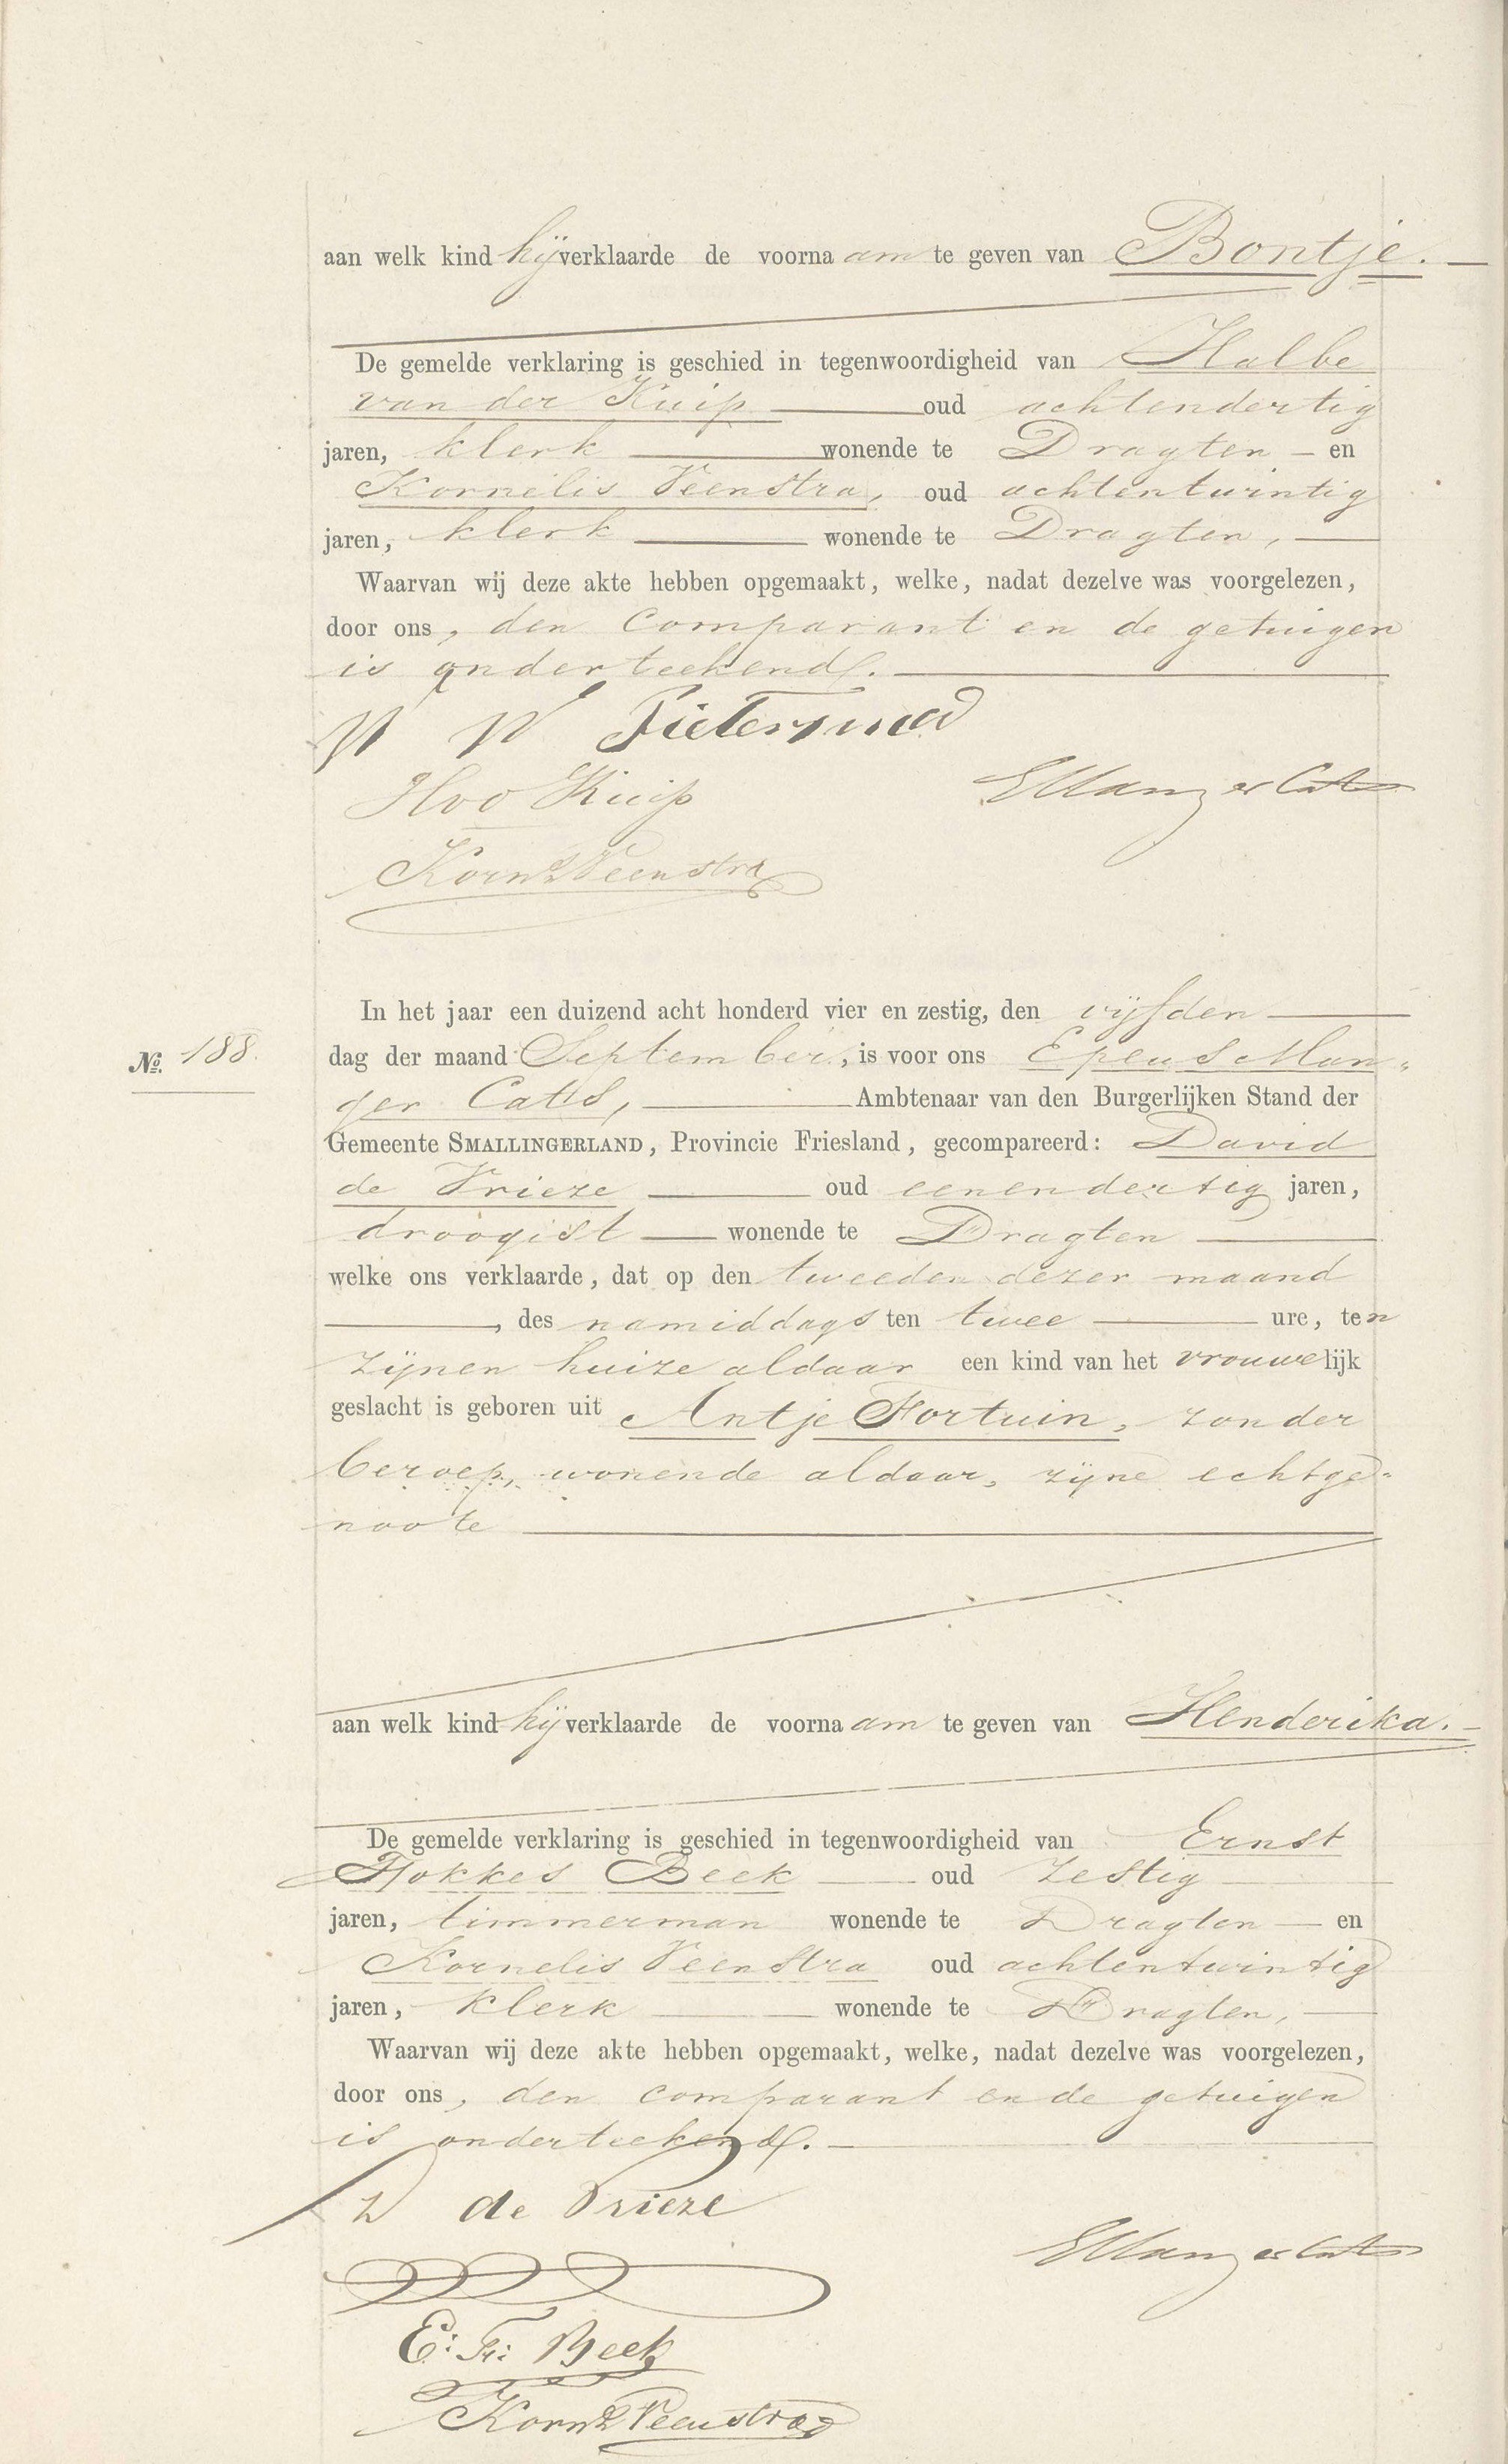 aan welk kind hij verklaarde de voornaam te geven van Bontje.
De gemelde verklaring is geschied in tegenwoordigheid van Halbe
van der Kuip oud achtendertig
jaren, klerk wonende te Dragten en
Kornelis Veenstra, oud achtentwintig
jaren, klerk wonende te Dragten,
Waarvan wij deze akte hebben opgemaakt, welke, nadat dezelve was voorgelezen,
door ons, den Comparant en de getuigen
is onderteekend.
W Pietersma
HvdKuip
EManger Cats
Korns Veenstra
In het jaar een duizend acht honderd vier en zestig, den vijfden
No. 188. dag der maand September, is voor ons Epeus Man-
ger Cats, Ambtenaar van den Burgerlijken Stand der
Gemeente SMALLINGERLAND, Provincie Friesland, gecompareerd: David
de Vrieze oud eenendertig jaren,
droogist wonende te Dragten
welke ons verklaarde, dat op den tweeden dezer maand
, des namiddags ten twee ure, ten
zijnen huize aldaar een kind van het vrouwelijk
geslacht is geboren uit Antje Fortuin, zonder
beroep, wonende aldaar, zijne echtge-
noote
aan welk kind hij verklaarde de voornaam te geven van Henderika.
De gemelde verklaring is geschied in tegenwoordigheid van Ernst
Fokkes Beek oud zestig
jaren, timmerman wonende te Dragten en
Kornelis Veenstra oud achtentwintig
jaren, klerk wonende te Dragten,
Waarvan wij deze akte hebben opgemaakt, welke, nadat dezelve was voorgelezen,
door ons, den comparant en de getuigen
is onderteekend.
D de Vrieze
EManger Cats
E: F: Beek
Korns Veenstra